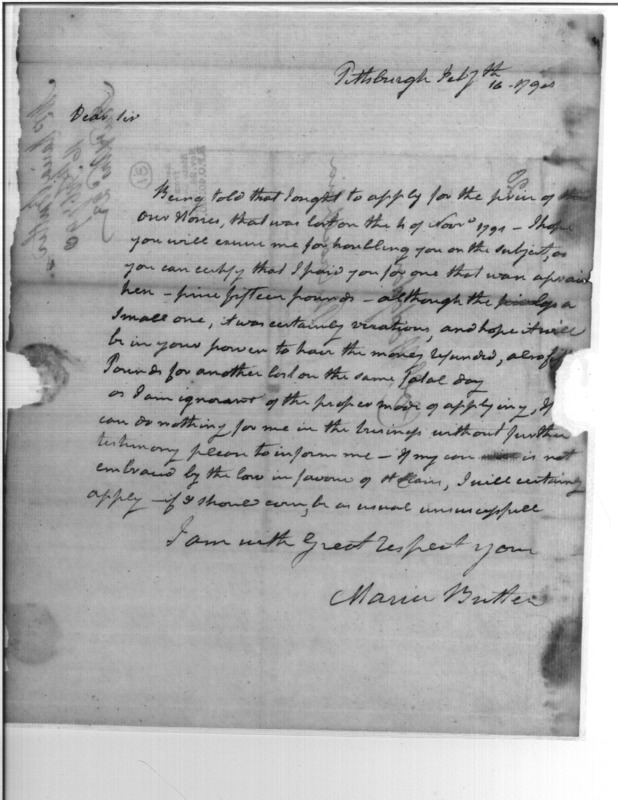 Pittsburgh Feb 7th
16 - 179
Dear Sir
Being told that I ought to apply for the price of
our Horses, that was lost on the 4 of Novr 1791 - I hope
you will excuse me for troubling you on the subject, as
you can certify that I paid you for one that was
then - price fifteen pounds - although the a
small one, it was certainly vexatious, and hope it will
be in your power to have the money refunded, also
Pounds for another lost on the same fatal day
as I am ignorant of the proper mode of applying, If
can do nothing for me in the business without further
testimony please to inform me - If my case is not
embraced by the law in favour of St Clair, I will certainly
apply - if I should even, be as usual
I am with Great respect your
Maria Butler